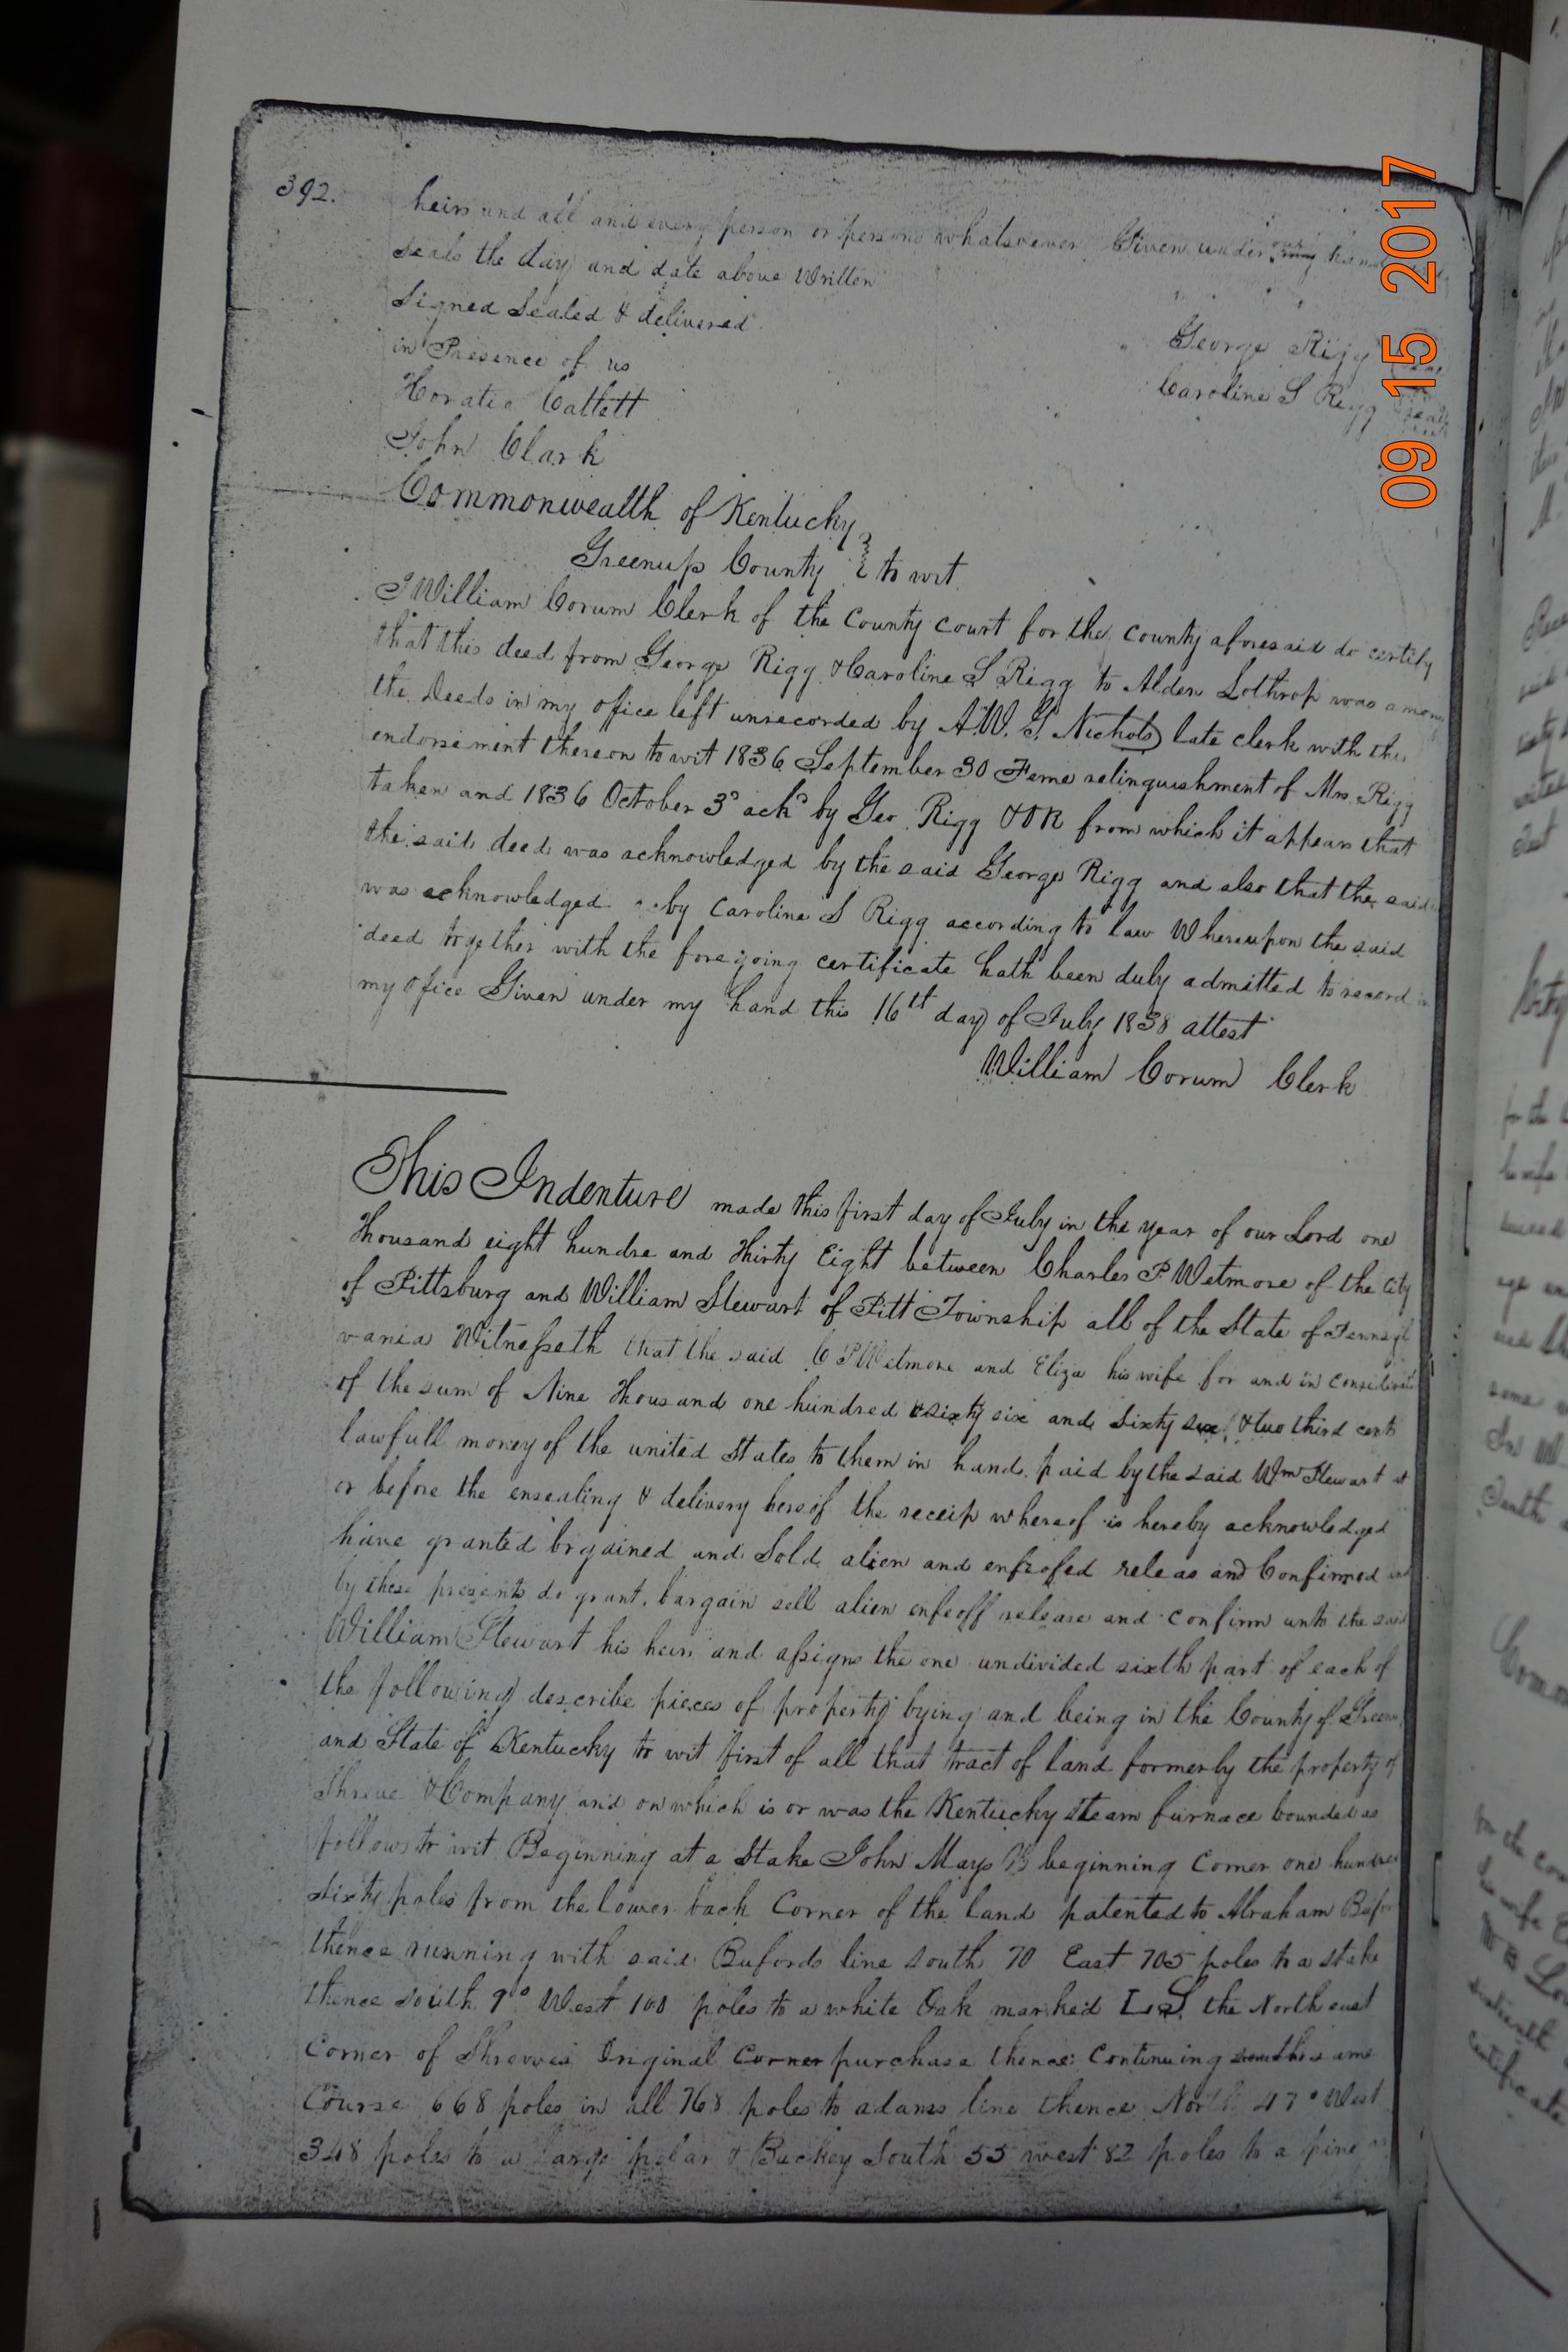 392.
heirs and all and every person or persons whatsoever Given under our hands
seals the day and date above Written
Signed Sealed & delivered
in Presence of us
Horatio Catlett
John Clark
George Rigg
Caroline S Rigg Seal
Commonwealth of Kentucky
Greenup County } to wit
I William Corum Clerk of the County court for the county aforesaid do certify
that this deed from George Rigg & Caroline S Rigg to Alden Lothrop was among
the Deeds in my office left unrecorded by A. W. G. Nichols late clerk with the
endorsement thereon to wit 1836 September 30 Feme relinquishment of Mrs. Rigg
taken and 1836 October 3d ackd by Geo. Rigg & OR from which it appears that
the said deed was acknowledged by the said George Rigg and also that the said
was acknowledged by Caroline S Rigg according to law Whereupon the said
deed together with the foregoing certificate hath been duly admitted to record in
my office Given under my hand this 16th day of July 1838 attest
William Corum Clerk
This Indenture made this first day of July in the year of our Lord one
Thousand eight hundre and Thirty Eight between Charles P Wetmore of the City
of Pittsburg and William Stewart of Pitt Township all of the State of Pennsyl
vania Witnesseth that the said C P Wetmore and Eliza his wife for and in consideration
of the sum of Nine Thousand one hundred & sixty six and sixty six & two third cents
lawfull money of the united States to them in hand paid by the said Wm Stewart at
or before the ensealing & delivery hereof the receip whereof is hereby acknowledged
have granted brgained and Sold alien and enfeofed releas and Confirmed and
by these presents do grant, bargain sell alien enfeoff release and confirm unto the said
William Stewart his heirs and assigns the one undivided sixth part of each of
the following describe pieces of property lying and being in the County of Greenup
and State of Kentucky to wit first of all that tract of land formerly the property of
Shreve & Company and on which is or was the Kentucky steam furnace bounded as
follows to wit Beginning at a Stake John Mays beginning Corner one hundred
sixty poles from the lower back Corner of the land patented to Abraham Bufor
thence running with said Bufords line south 70 East 705 poles to a stake
thence south 9° West 100 poles to a white Oak marked L.S. the North east
Corner of Shreves Original Corner purchase thence Continuing same
Course 668 poles in all 768 poles to adams line thence North 47° West
348 poles to a large polar & Buckey South 55 west 82 poles to a pine
09 15 2017